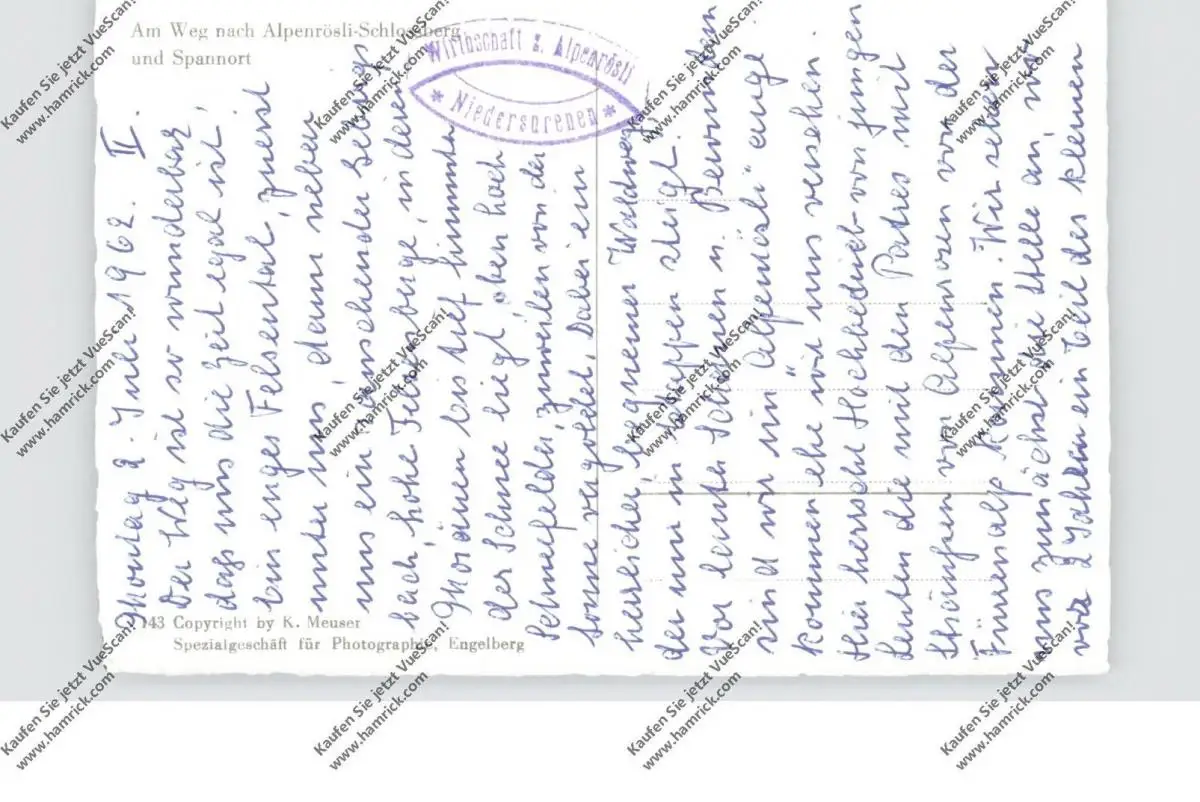 Am Weg nach Alpenrösli-Schlossberg
und Spannort
Wirthschaft z. Alpenrösli
* Niedersurenen *
Montag 2. Juli 1962. II.
Der Weg ist so wunderbar
dass uns die Zeit egal ist,
Ein enges Felsental, zuerst
unter uns, dann neben
uns ein rauschender Gebirgs
bach, hohe Felsberge, in deren
Moränen bis tief hinunter
der Schnee liegt, oben hoch
Schneefelder, zuweilen von der
Sonne vergoldet. Dabei ein
herrlicher bequemer Waldweg,
der nur in Etappen steigt.
Vor lauter Schauen u. Bewundern
sind wir im "Alpenrösli" ange
kommen ehe wir uns versehen.
Hier herrscht Hochbetrieb von jungen
Leuten die mit den Patres mit
von Alpenrosen von der
Fürrenalp kommen. Wir sehen
uns zunächst die Stelle an, wo
vor 2 Jahren ein Teil des kleinen
143 Copyright by K. Meuser
Spezialgeschäft für Photographie, Engelberg
Kaufen Sie jetzt VueScan!
www.hamrick.com